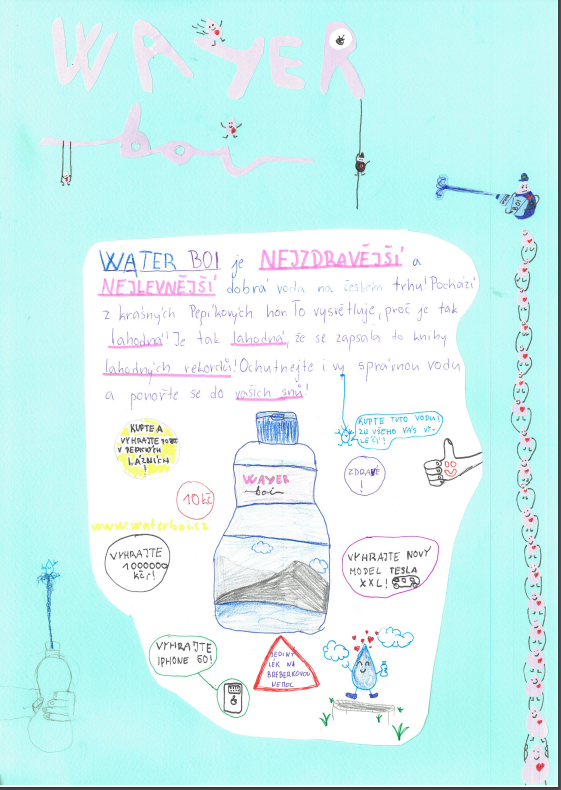 WAYER
boi
WATER BOI je NEJZDRAVĚJŠÍ a
NEJLEVNĚJŠÍ dobrá voda na českém trhu! Pochází
z krásných Pepíkových hor. To vysvětluje, proč je tak
lahodná! Je tak lahodná, že se zapsala do knihy
lahodných rekordů! Ochutnejte i vy správnou vodu
a ponořte se do vašich snů!
KUPTE A
VYHRAJTE
V
LÁZNÍCH
!
KUPTE TUTO VODU!
ZE VŠEHO VÁS VY-
LÉČÍ!
ZDRAVÉ
!
10 Kč
WAYER
boi
www.waterboi.cz
VYHRAJTE
1000000
Kč!
VYHRAJTE NOVÝ
MODEL TESLA
XXL!
VYHRAJTE
IPHONE 60!
JEDINÝ
LÉK NA
BREBERKOVOU
NEMOC